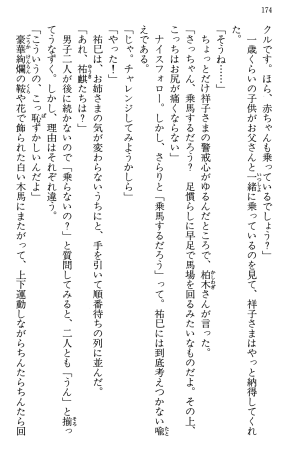 174
クルです。ほら、赤ちゃんも乗っているでしょう？」
一歳くらいの子供がお父さんと一緒に乗っているのを見て、祥子さまはやっと納得してくれ
た。
「そうね……」
ちょっとだけ祥子さまの警戒心がゆるんだところで、柏木さんが言った。
「さっちゃん、乗馬するだろう？　足慣らしに早足で馬場を回るみたいなものだよ。その上、
こっちはお尻が痛くならない」
ナイスフォロー。しかし、さらりと「乗馬するだろう」って。祐巳には到底考えつかない喩
えである。
「じゃ。チャレンジしてみようかしら」
「やった！」
祐巳は、お姉さまの気が変わらないうちにと、手を引いて順番待ちの列に並んだ。
「あれ、祐麒たちは？」
男子二人が後に続かないので「乗らないの？」と質問してみると、二人とも「うん」と揃っ
てうなずく。しかし、理由はそれぞれ違う。
「こういうの、こっ恥ずかしいんだよ」
豪華絢爛の鞍や花で飾られた白い木馬にまたがって、上下運動しながらちんたらちんたら回